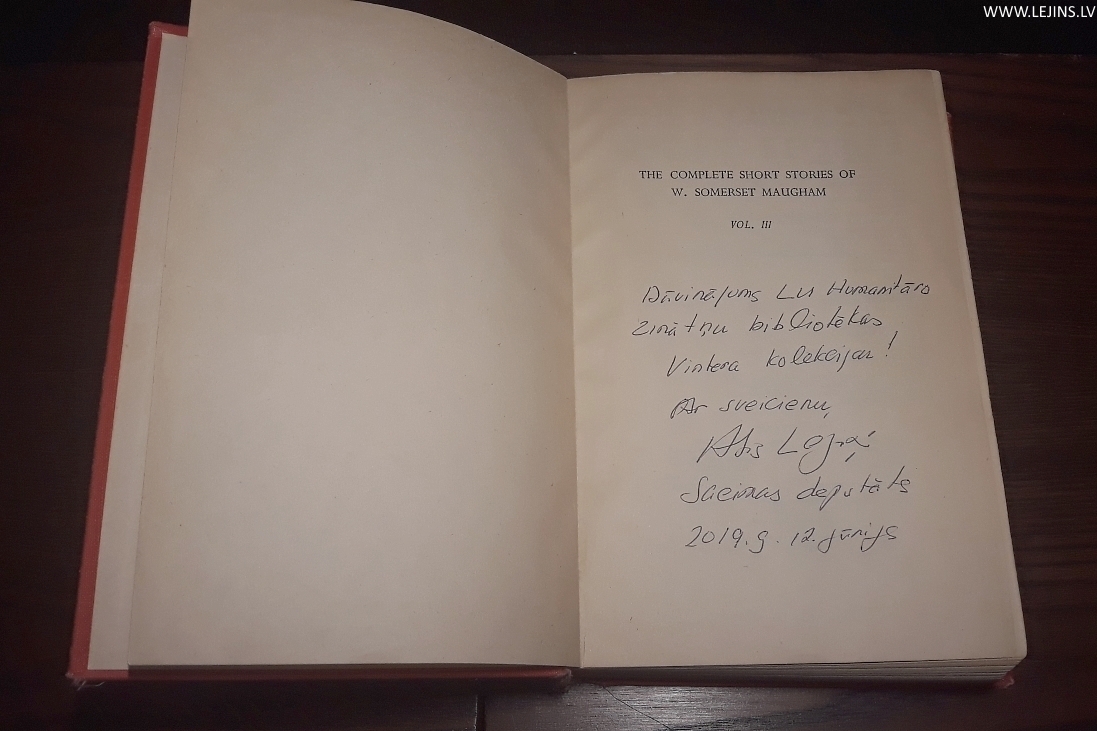 WWW.LEJINS.LV
THE COMPLETE SHORT STORIES OF
W. SOMERSET MAUGHAM
VOL. III
Dāvinājums LU Humanitāro
zinātņu bibliotēkas
Vintera kolekcijai!
Ar sveicienu,
Atis Lejiņš
Saeimas deputāts
2019. g. 12. jūnijs